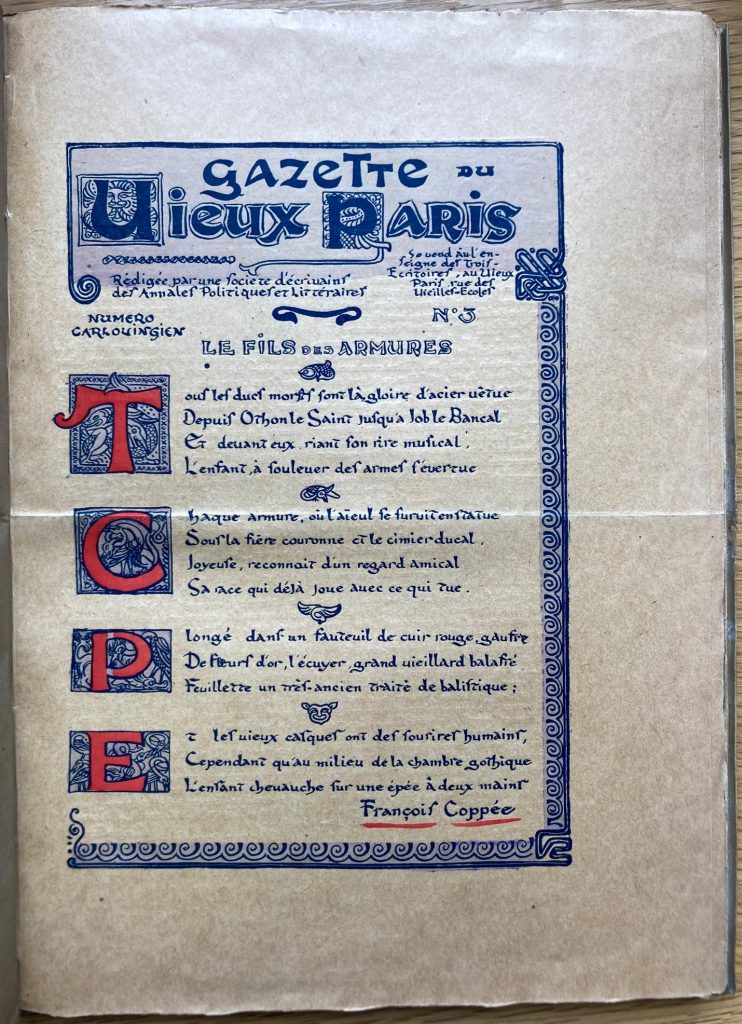 GAZETTE DU
Vieux PARIS
Rédigée par une Société d'écrivains
des Annales Politiques et Littéraires
Se vend à l'en-
seigne des Trois-
Écritoires, au Vieux
Paris, rue des
Vieilles-Ecoles
NUMERO
CARLOVINGIEN
N° 3
LE FILS DES ARMURES
Tous les ducs morts sont là, gloire d'acier vêtue
Depuis Othon le Saint jusqu'a Job le Bancal
Et devant eux, riant son rire musical,
L'enfant, à soulever des armes s'évertue
Chaque armure, où l'aïeul se survit en statue
Sous la fière couronne et le cimier ducal,
Joyeuse, reconnait d'un regard amical
Sa race qui déjà joue avec ce qui tue.
Plongé dans un fauteuil de cuir rouge, gaufré
De fleurs d'or, l'écuyer, grand vieillard balafré
Feuillette un très-ancien traité de balistique;
Et les vieux casques ont des sourires humains,
Cependant qu'au milieu de la chambre gothique
L'enfant chevauche sur une épée à deux mains
François Coppée